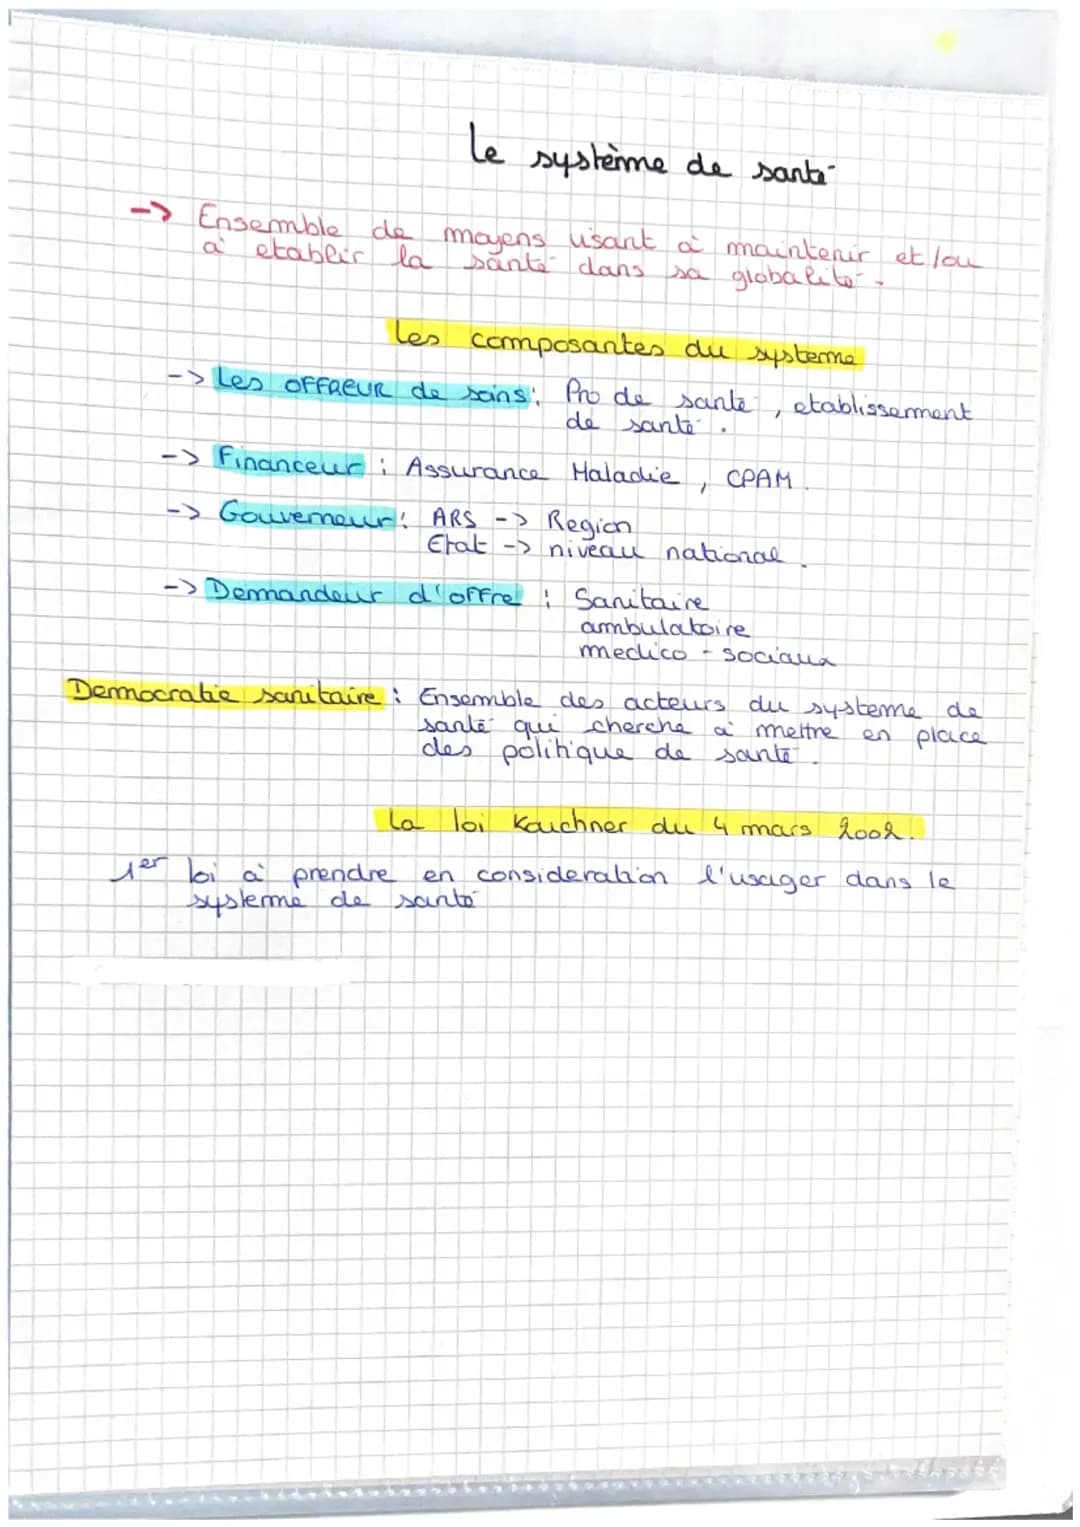 Le système de santé
-> Ensemble de moyens visant à maintenir et/ou
à etablir la santé dans sa globalité.
Les composantes du systeme
-> Les OFFREUR de soins : Pro de santé, etablissement
de santé.
-> Financeur : Assurance Maladie, CPAM.
-> Gouverneur : ARS -> Region
Etat -> niveau national.
-> Demandeur d'offre : Sanitaire
ambulatoire
medico-sociaux
Democratie sanitaire : Ensemble des acteurs du systeme de
santé qui cherche à mettre en place
des politique de santé.
La loi Kouchner du 4 mars 2002.
1er loi à prendre en consideration l'usager dans le
systeme de santé